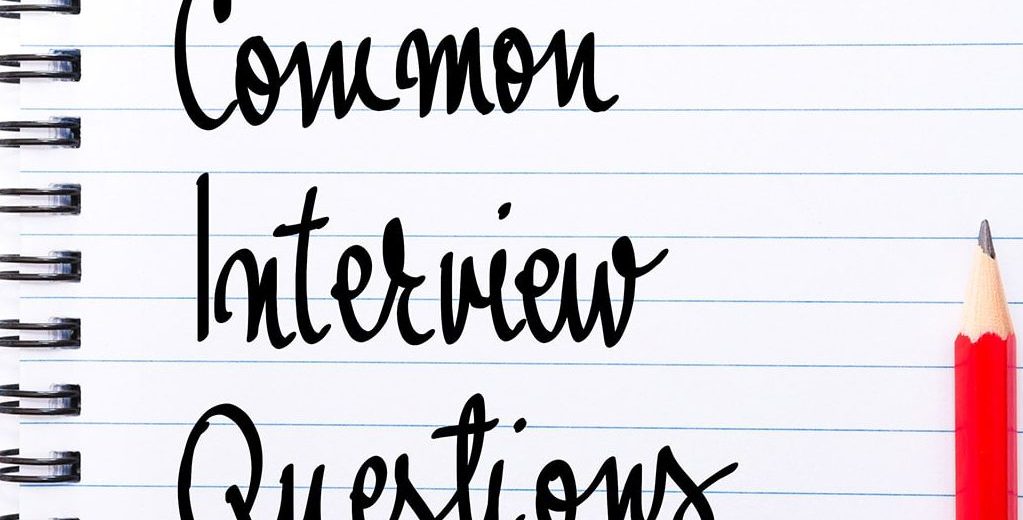 Common
Interview
Questions